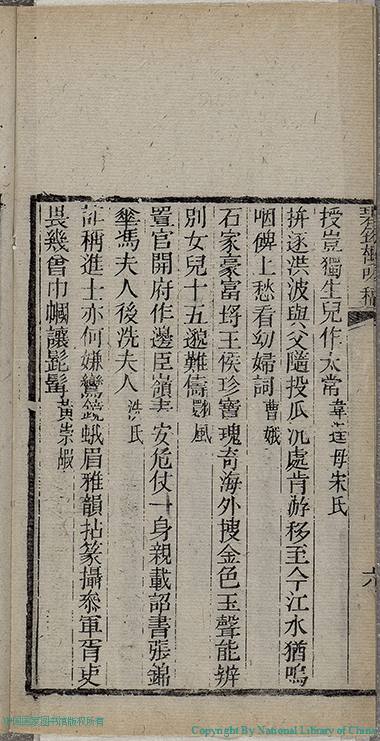 授豈獨生兒作太常韋逞母宋氏
拚逐洪波與父隨投瓜沉處肯游移至今江水猶嗚
咽碑上愁看幼婦詞曹娥
石家豪富埒王侯珍寶瑰奇海外搜金色玉聲能辨
別女兒十五邈難儔翾風
置官開府作邊臣嶺表安危仗一身親載詔書張錦
傘馮夫人後洗夫人洗氏
詐稱進士亦何嫌鸞鏡蛾眉雅韻拈篆攝叅軍胥吏
畏幾曾巾幗讓髭髯黃崇嘏
六
中国国家图书馆版权所有
Copyright By National Library of China